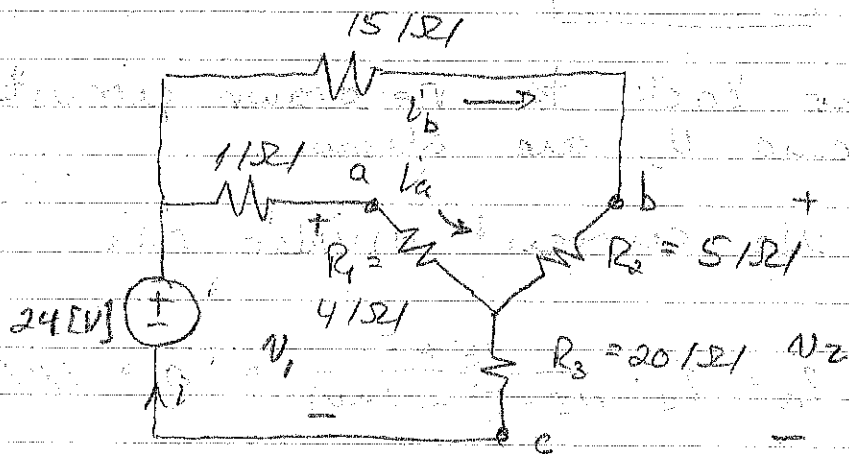 15 [Ω]
i_b
1 [Ω]
a i_a b +
+
R_1 = R_2 = 5 [Ω]
4 [Ω]
24 [V] + -
v_1 R_3 = 20 [Ω] v_2
i
- c -